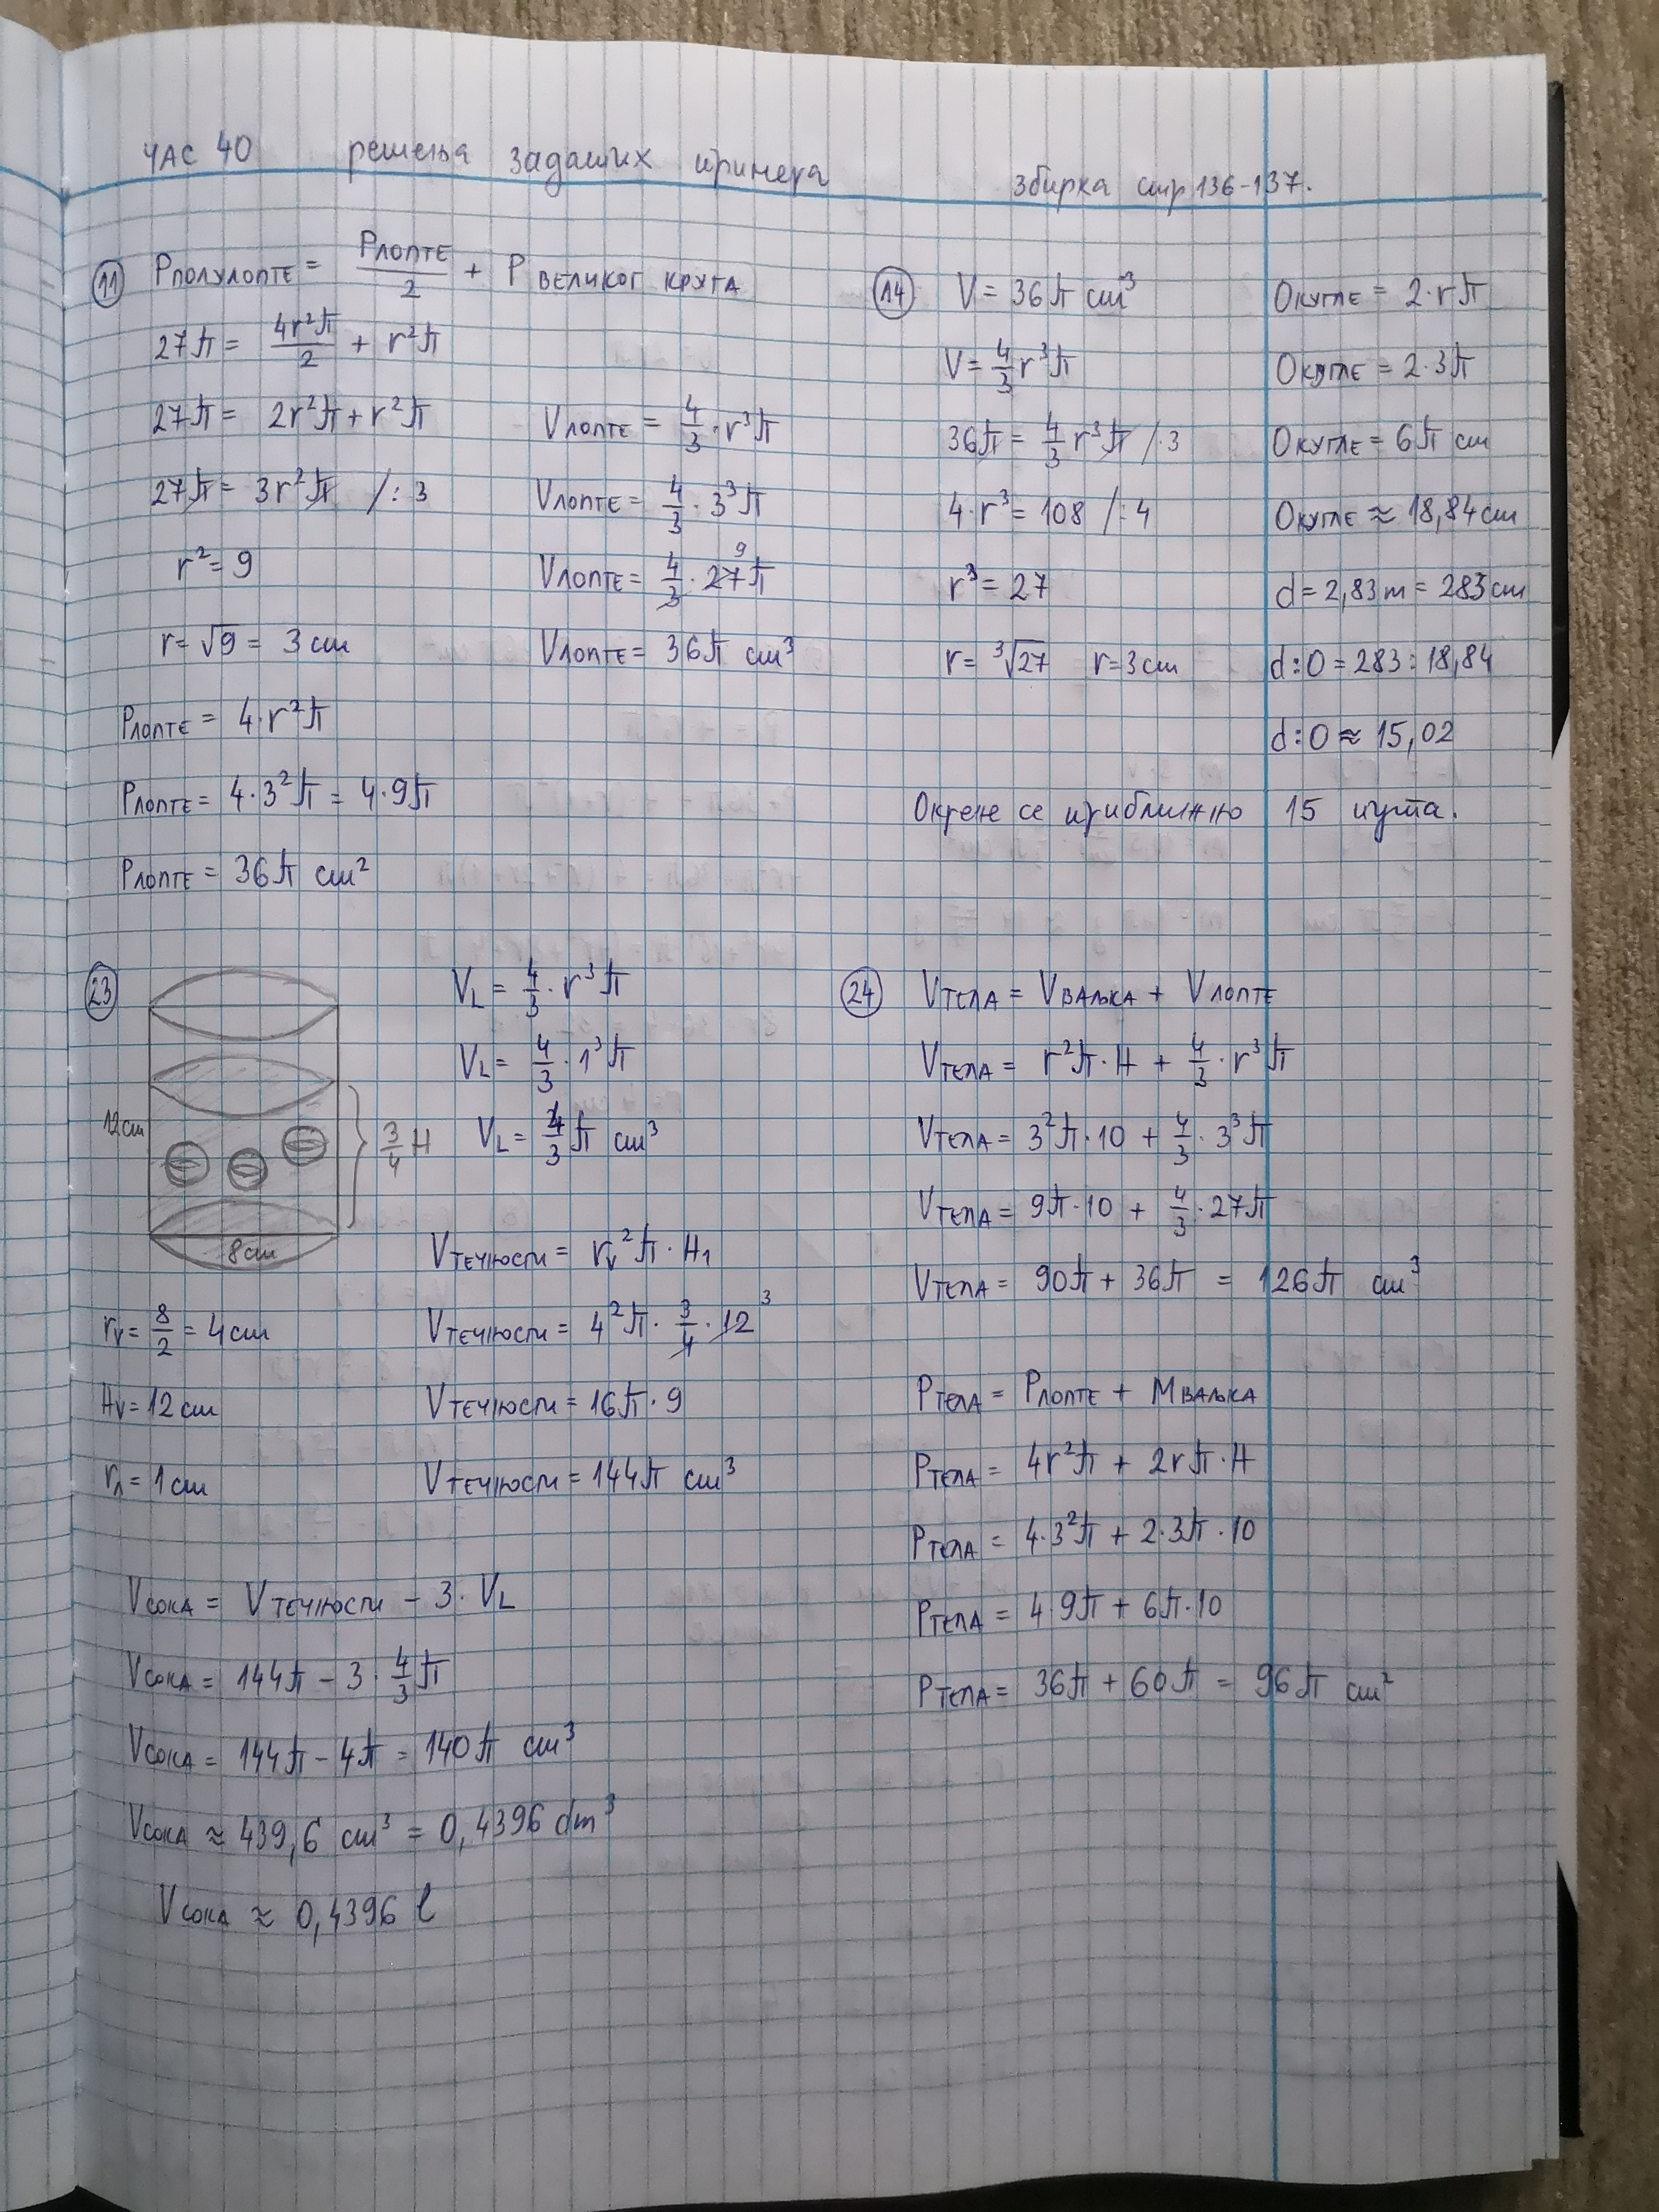 ЧАС 40 решења задатих примера збирка стр 136-137.
11 Pполулопте = Pлопте/2 + P великог круга
27π = 4r²π/2 + r²π
27π = 2r²π + r²π
27π = 3r²π /:3
r² = 9
r = √9 = 3 cm
Pлопте = 4·r²π
Pлопте = 4·3²π = 4·9π
Pлопте = 36π cm²
Vлопте = 4/3·r³π
Vлопте = 4/3·3³π
Vлопте = 4/3·27π 9
Vлопте = 36π cm³
14 V = 36π cm³
V = 4/3 r³π
36π = 4/3 r³π /·3
4·r³ = 108 /:4
r³ = 27
r = ³√27 r = 3 cm
Oкугле = 2·rπ
Oкугле = 2·3π
Oкугле = 6π cm
Oкугле ≈ 18,84 cm
d = 2,83 m = 283 cm
d:O = 283:18,84
d:O ≈ 15,02
Окрене се приближно 15 пута.
23
12cm
3/4 H
8cm
rv = 8/2 = 4 cm
Hv = 12 cm
rл = 1 cm
VL = 4/3·r³π
VL = 4/3·1³π
VL = 4/3 π cm³
Vтечности = rv²π·H1
Vтечности = 4²π·3/4·12 3
Vтечности = 16π·9
Vтечности = 144π cm³
Vсока = Vтечности - 3·VL
Vсока = 144π - 3·4/3π
Vсока = 144π - 4π = 140π cm³
Vсока ≈ 439,6 cm³ = 0,4396 dm³
Vсока ≈ 0,4396 l
24 Vтела = Vваљка + Vлопте
Vтела = r²π·H + 4/3·r³π
Vтела = 3²π·10 + 4/3·3³π
Vтела = 9π·10 + 4/3·27π
Vтела = 90π + 36π = 126π cm³
Pтела = Pлопте + Mваљка
Pтела = 4r²π + 2rπ·H
Pтела = 4·3²π + 2·3π·10
Pтела = 4·9π + 6π·10
Pтела = 36π + 60π = 96π cm²